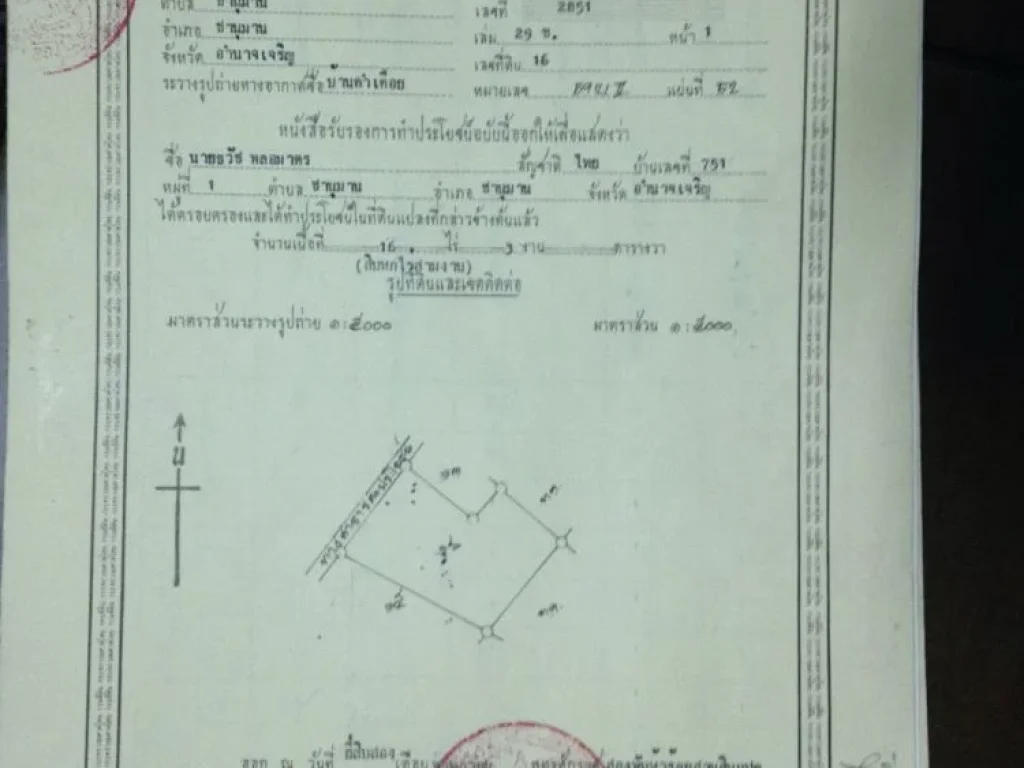 ตำบล ชานุมาน เลขที่ 2851
อำเภอ ชานุมาน เล่ม 29 ข. หน้า 1
จังหวัด อำนาจเจริญ เลขที่ดิน 16
ระวางรูปถ่ายทางอากาศชื่อ บ้านคำเดือย หมายเลข แผ่นที่ 52
หนังสือรับรองการทำประโยชน์ฉบับนี้ออกให้เพื่อแสดงว่า
ชื่อ นายธวัช พลอมาตร สัญชาติ ไทย บ้านเลขที่ 751
หมู่ที่ 1 ตำบล ชานุมาน อำเภอ ชานุมาน จังหวัด อำนาจเจริญ
ได้ครอบครองและได้ทำประโยชน์ในที่ดินแปลงที่กล่าวข้างต้นแล้ว
จำนวนเนื้อที่ 16 ไร่ 3 งาน ตารางวา
(สิบหกไร่สามงาน)
รูปที่ดินและเขตติดต่อ
มาตราส่วนระวางรูปถ่าย ๑:๕๐๐๐ มาตราส่วน ๑:๕๐๐๐
น
๑๓
ต.ต.
ต.ต.
ออก ณ วันที่ ยี่สิบสอง เดือน